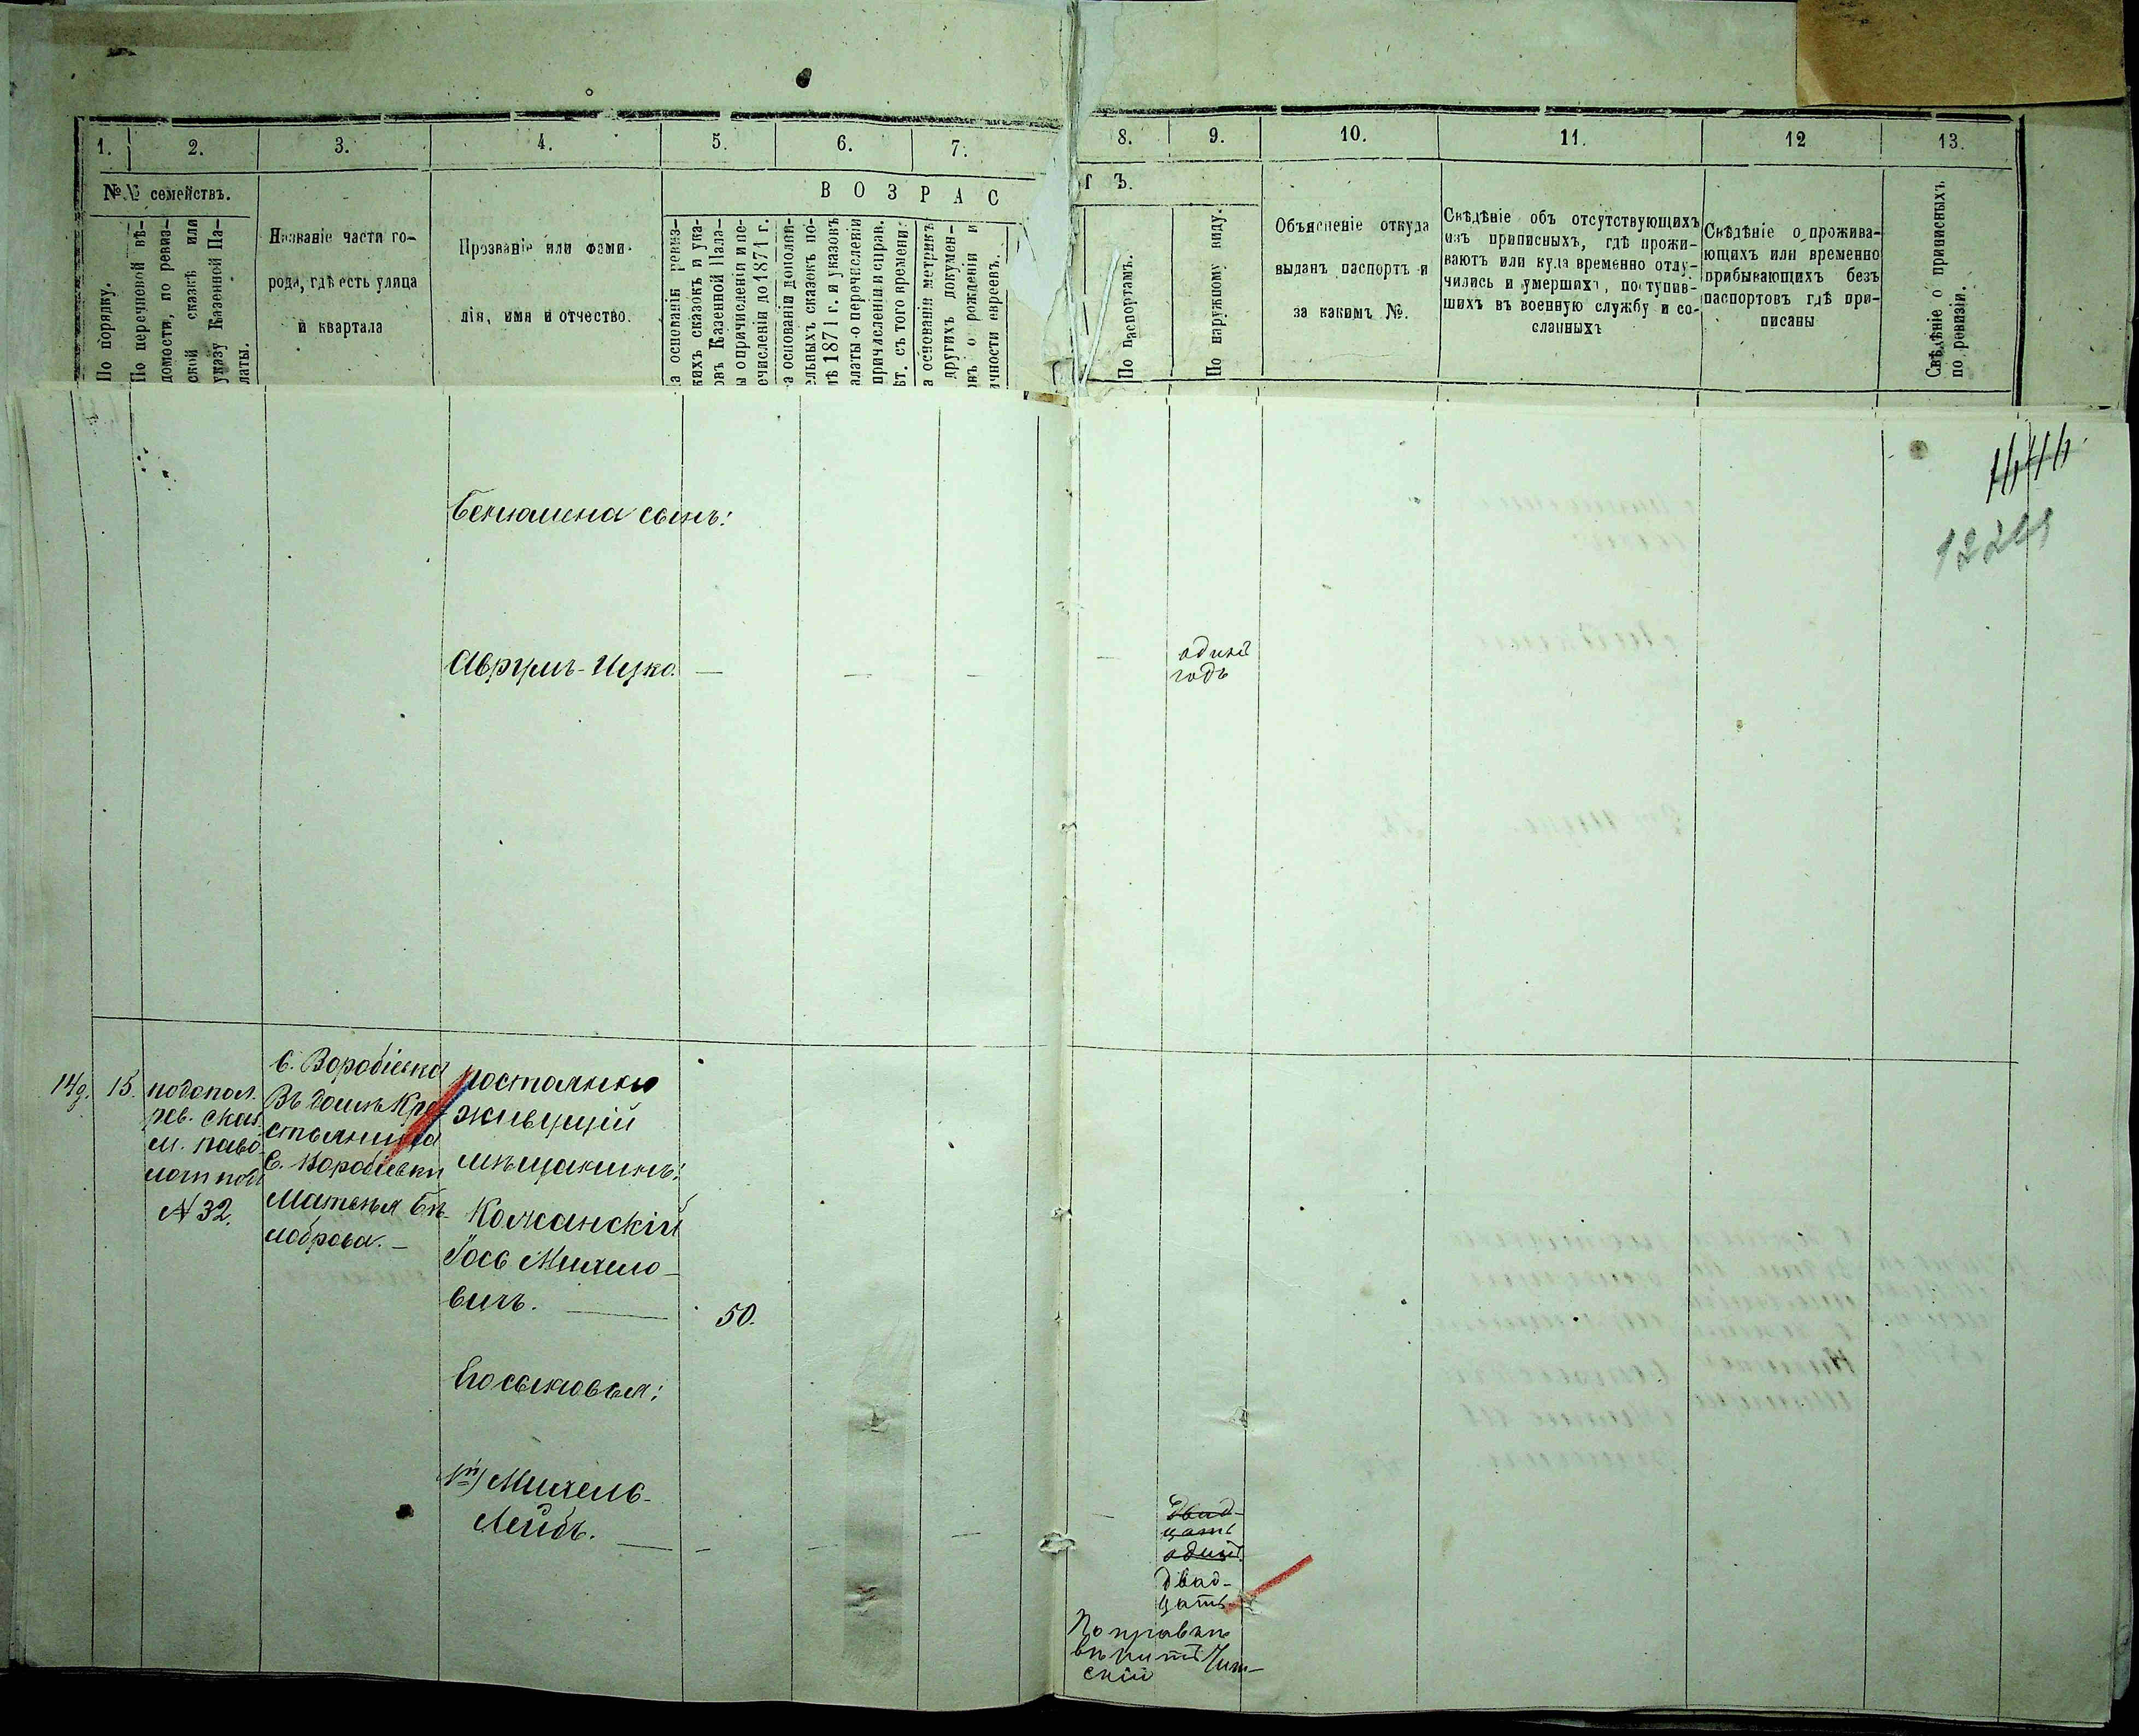 1.
2.
3.
4.
5.
6.
7.
8.
9.
10.
11.
12
13.
№№ семействъ.
В О З Р А С
Т Ъ.
По порядку.
По перечневой вѣ-
домости, по ревиз-
ской сказкѣ или
указу Казенной Па-
латы.
Названіе части го-
рода, гдѣ есть улица
и квартала
Прозваніе или фами-
лія, имя и отчество.
а основаніи ревиз-
кихъ сказокъ и ука-
овъ Казенной Пала-
ы о причисленіи и пе-
ечисленіи до 1871 г.
а основаніи дополни-
ельныхъ сказокъ по-
лѣ 1871 г. и указовъ
алаты о перечисленіи
причисленіи и справ.
ѣт. съ того времени.
а основаніи метрикъ
другихъ докумен-
овъ о рожденіи и
ичности евреевъ.
По паспортамъ.
По наружному виду.
Объясненіе откуда
выданъ паспортъ и
за какимъ №.
Свѣдѣніе объ отсутствующихъ
изъ приписныхъ, гдѣ прожи-
ваютъ или куда временно отлу-
чились и умершихъ, поступив-
шихъ въ военную службу и со-
сланныхъ
Свѣдѣніе о прожива-
ющихъ или временно
прибывающихъ безъ
паспортовъ гдѣ при-
писаны
Свѣдѣніе о приписныхъ
по ревизіи.
Бенюмена сынъ:
Аврумъ-Ицко. — — — — одинъ
годъ
149. 15.
подопол.
рев. сказ.
м. Паво
лочи подъ
N 32.
С. Воробіевка
Въ домѣ Кре-
стьянина
С. Воробіевки
Матвѣя Бѣ-
лоброва. —
постоянно
живущій
мѣщанинъ:
Кожанскій
Іось Михело-
вичъ. — 50.
Его сыновья:
1й) Михель-
Лейбъ. — — — — —
двад-
цать
одинъ
двад-
цать